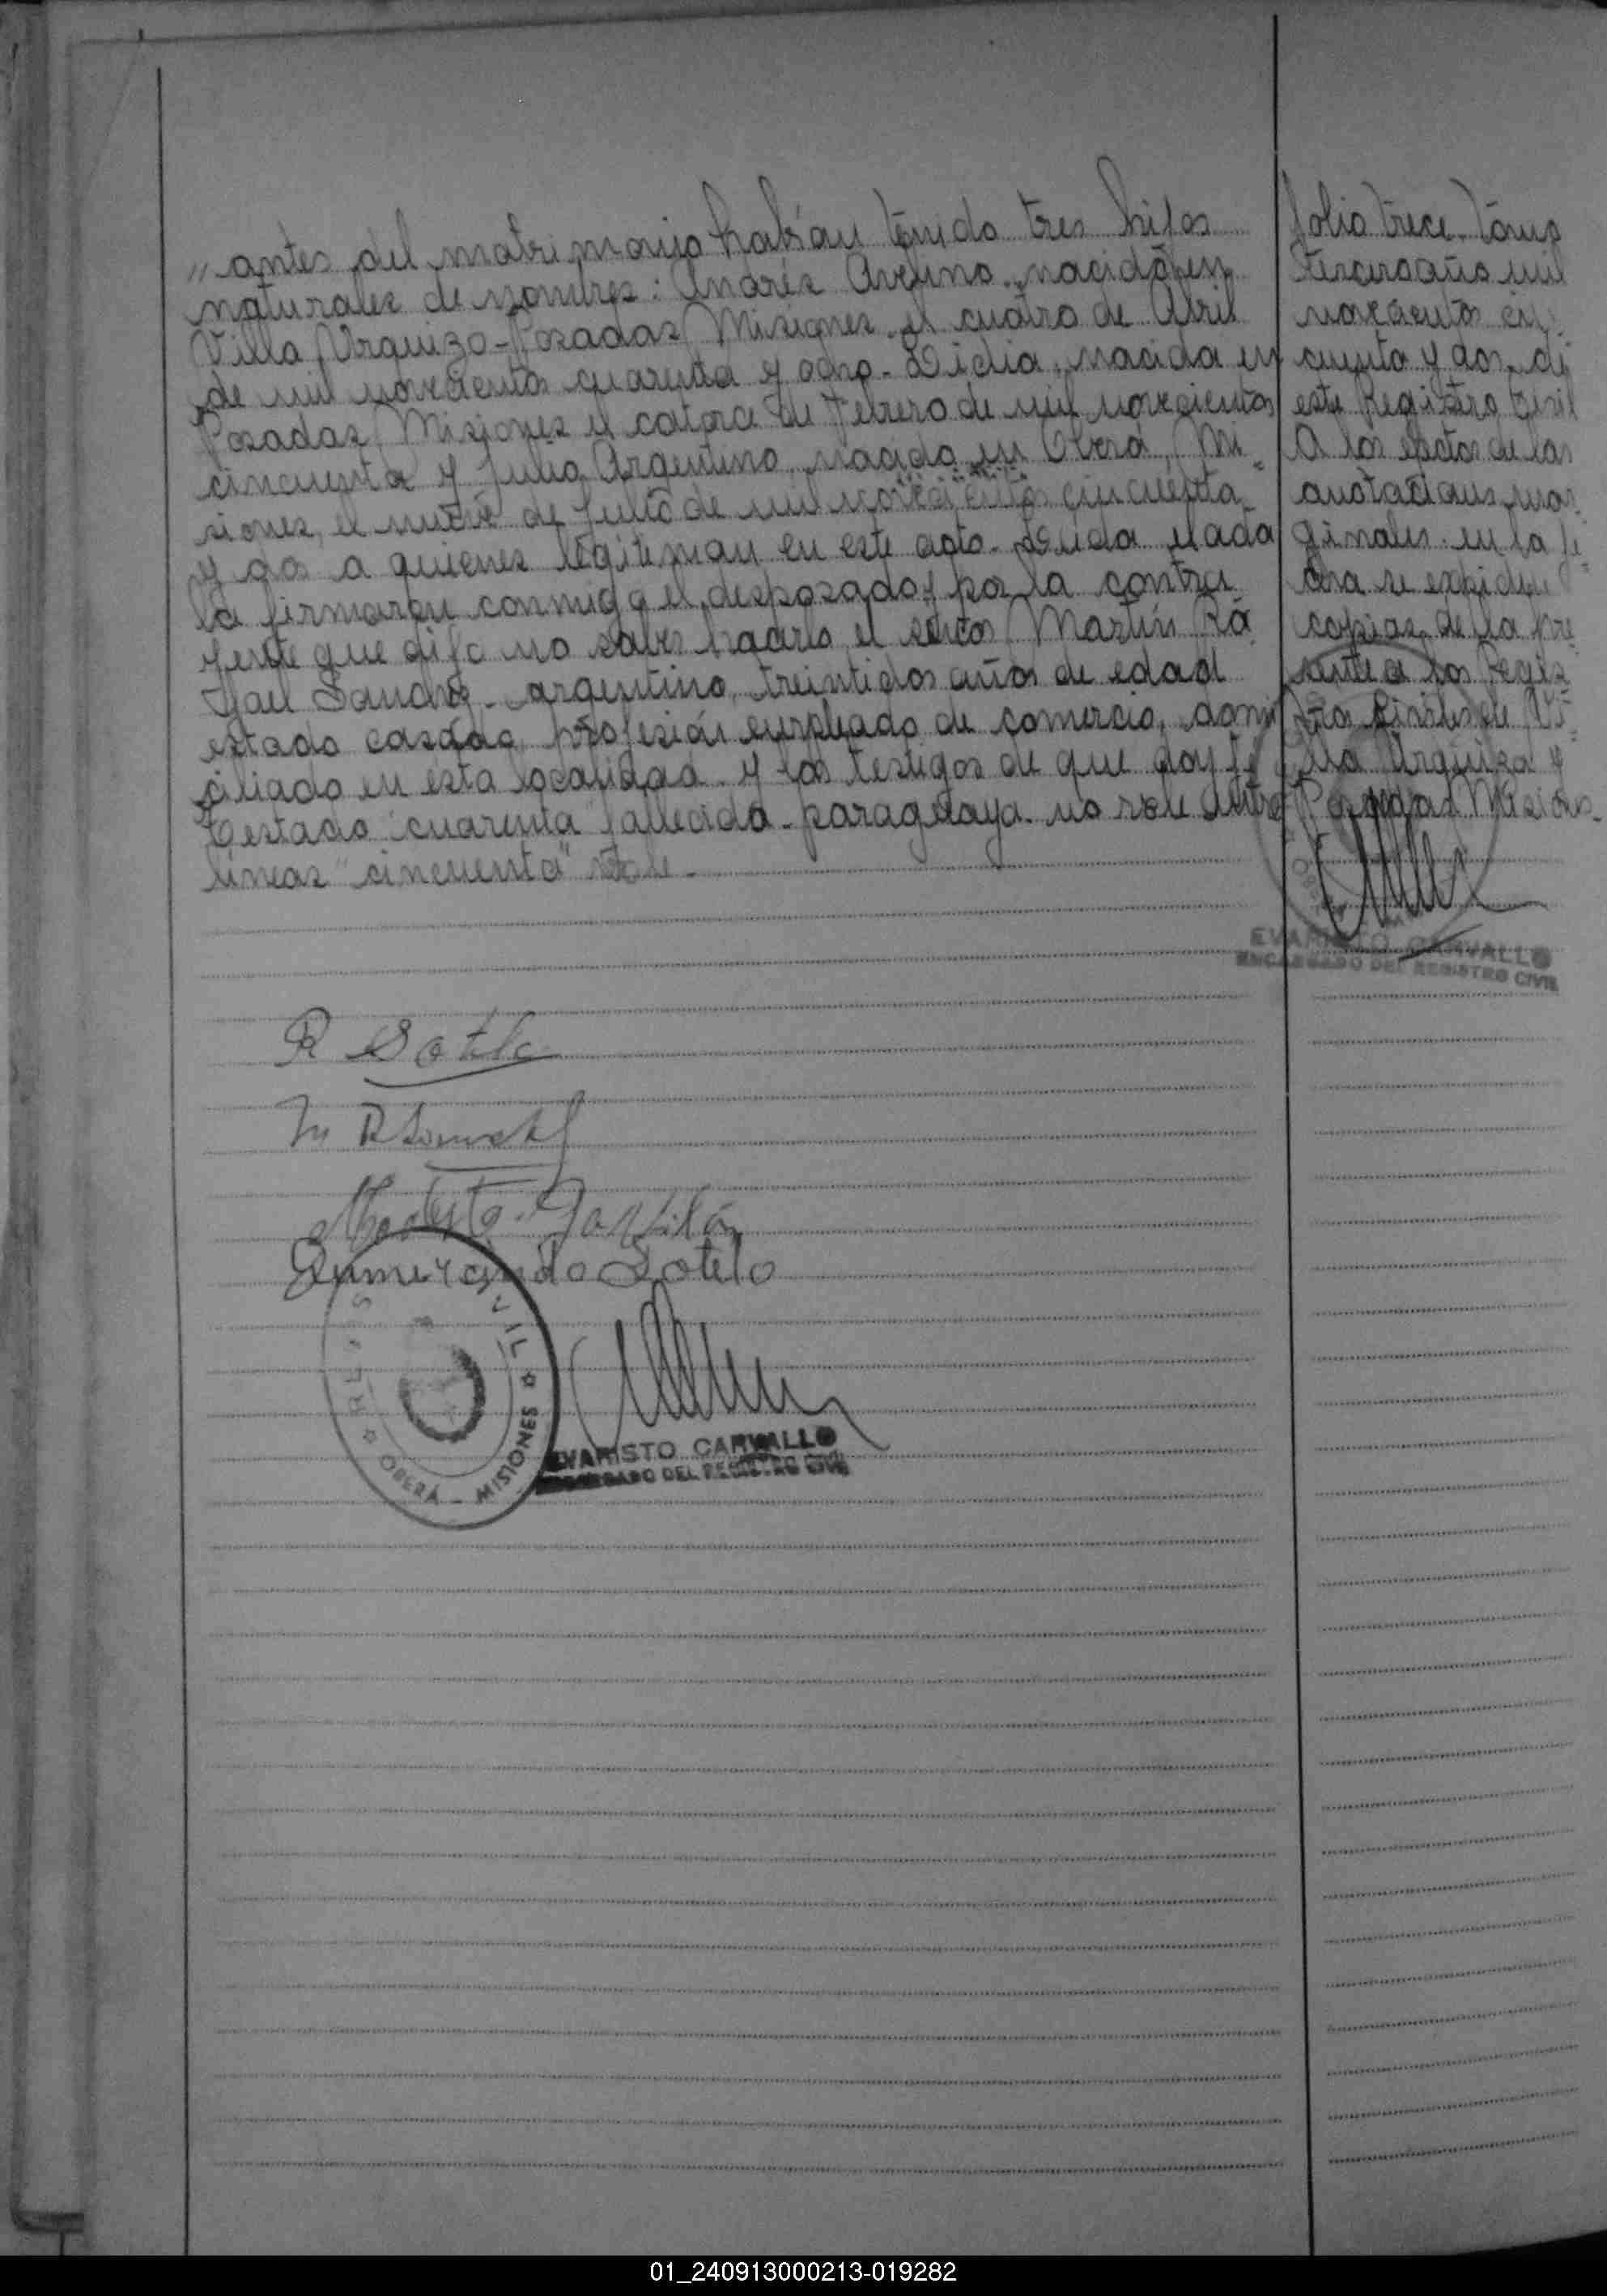 " antes del matrimonio habían tenido tres hijos
naturales de nombres: Andrés Avelino, nacido en
Villa Urquizo-Posadas Misiones el cuatro de Abril
de mil novecientos cuarenta y ocho - nacida en
Posadas Misiones el catorce de Febrero de mil novecientos
cincuenta y Julio Argentino, nacido en Oberá, Mi-
siones, el nueve de Julio de mil novecientos cincuenta
y dos a quienes legitiman en este acto. Leída el acta
la firmaron conmigo el desposado y por la contra
yente que dijo no saber hacerlo el señor Martín Ra
fael argentino, treintidos años de edad
estado casado, profesión empleado de comercio, domi
ciliado en esta localidad y los testigos de que doy fe
Testado "cuarenta" fallecido - paraguaya. no vale Entre
lineas "cincuenta" Vale.-
folio trece. Tomo
tercero año mil
novecientos cin-
cuenta y dos. de
este Registro Civil
A los efectos de las
anotaciones mar-
ginales en la fe-
cha se expiden
copias de la pre
sente a los Regis
tros Civiles de Vi-
lla Urquiza y
Posadas Misiones.
EVARISTO CARVALLO
ENCARGADO DEL REGISTRO CIVIL
R Sotelo
M R
Modesto Gavilán
Gumercindo Sotelo
OBERÁ - MISIONES
EVARISTO CARVALLO
ENCARGADO DEL REGISTRO CIVIL
01_240913000213-019282